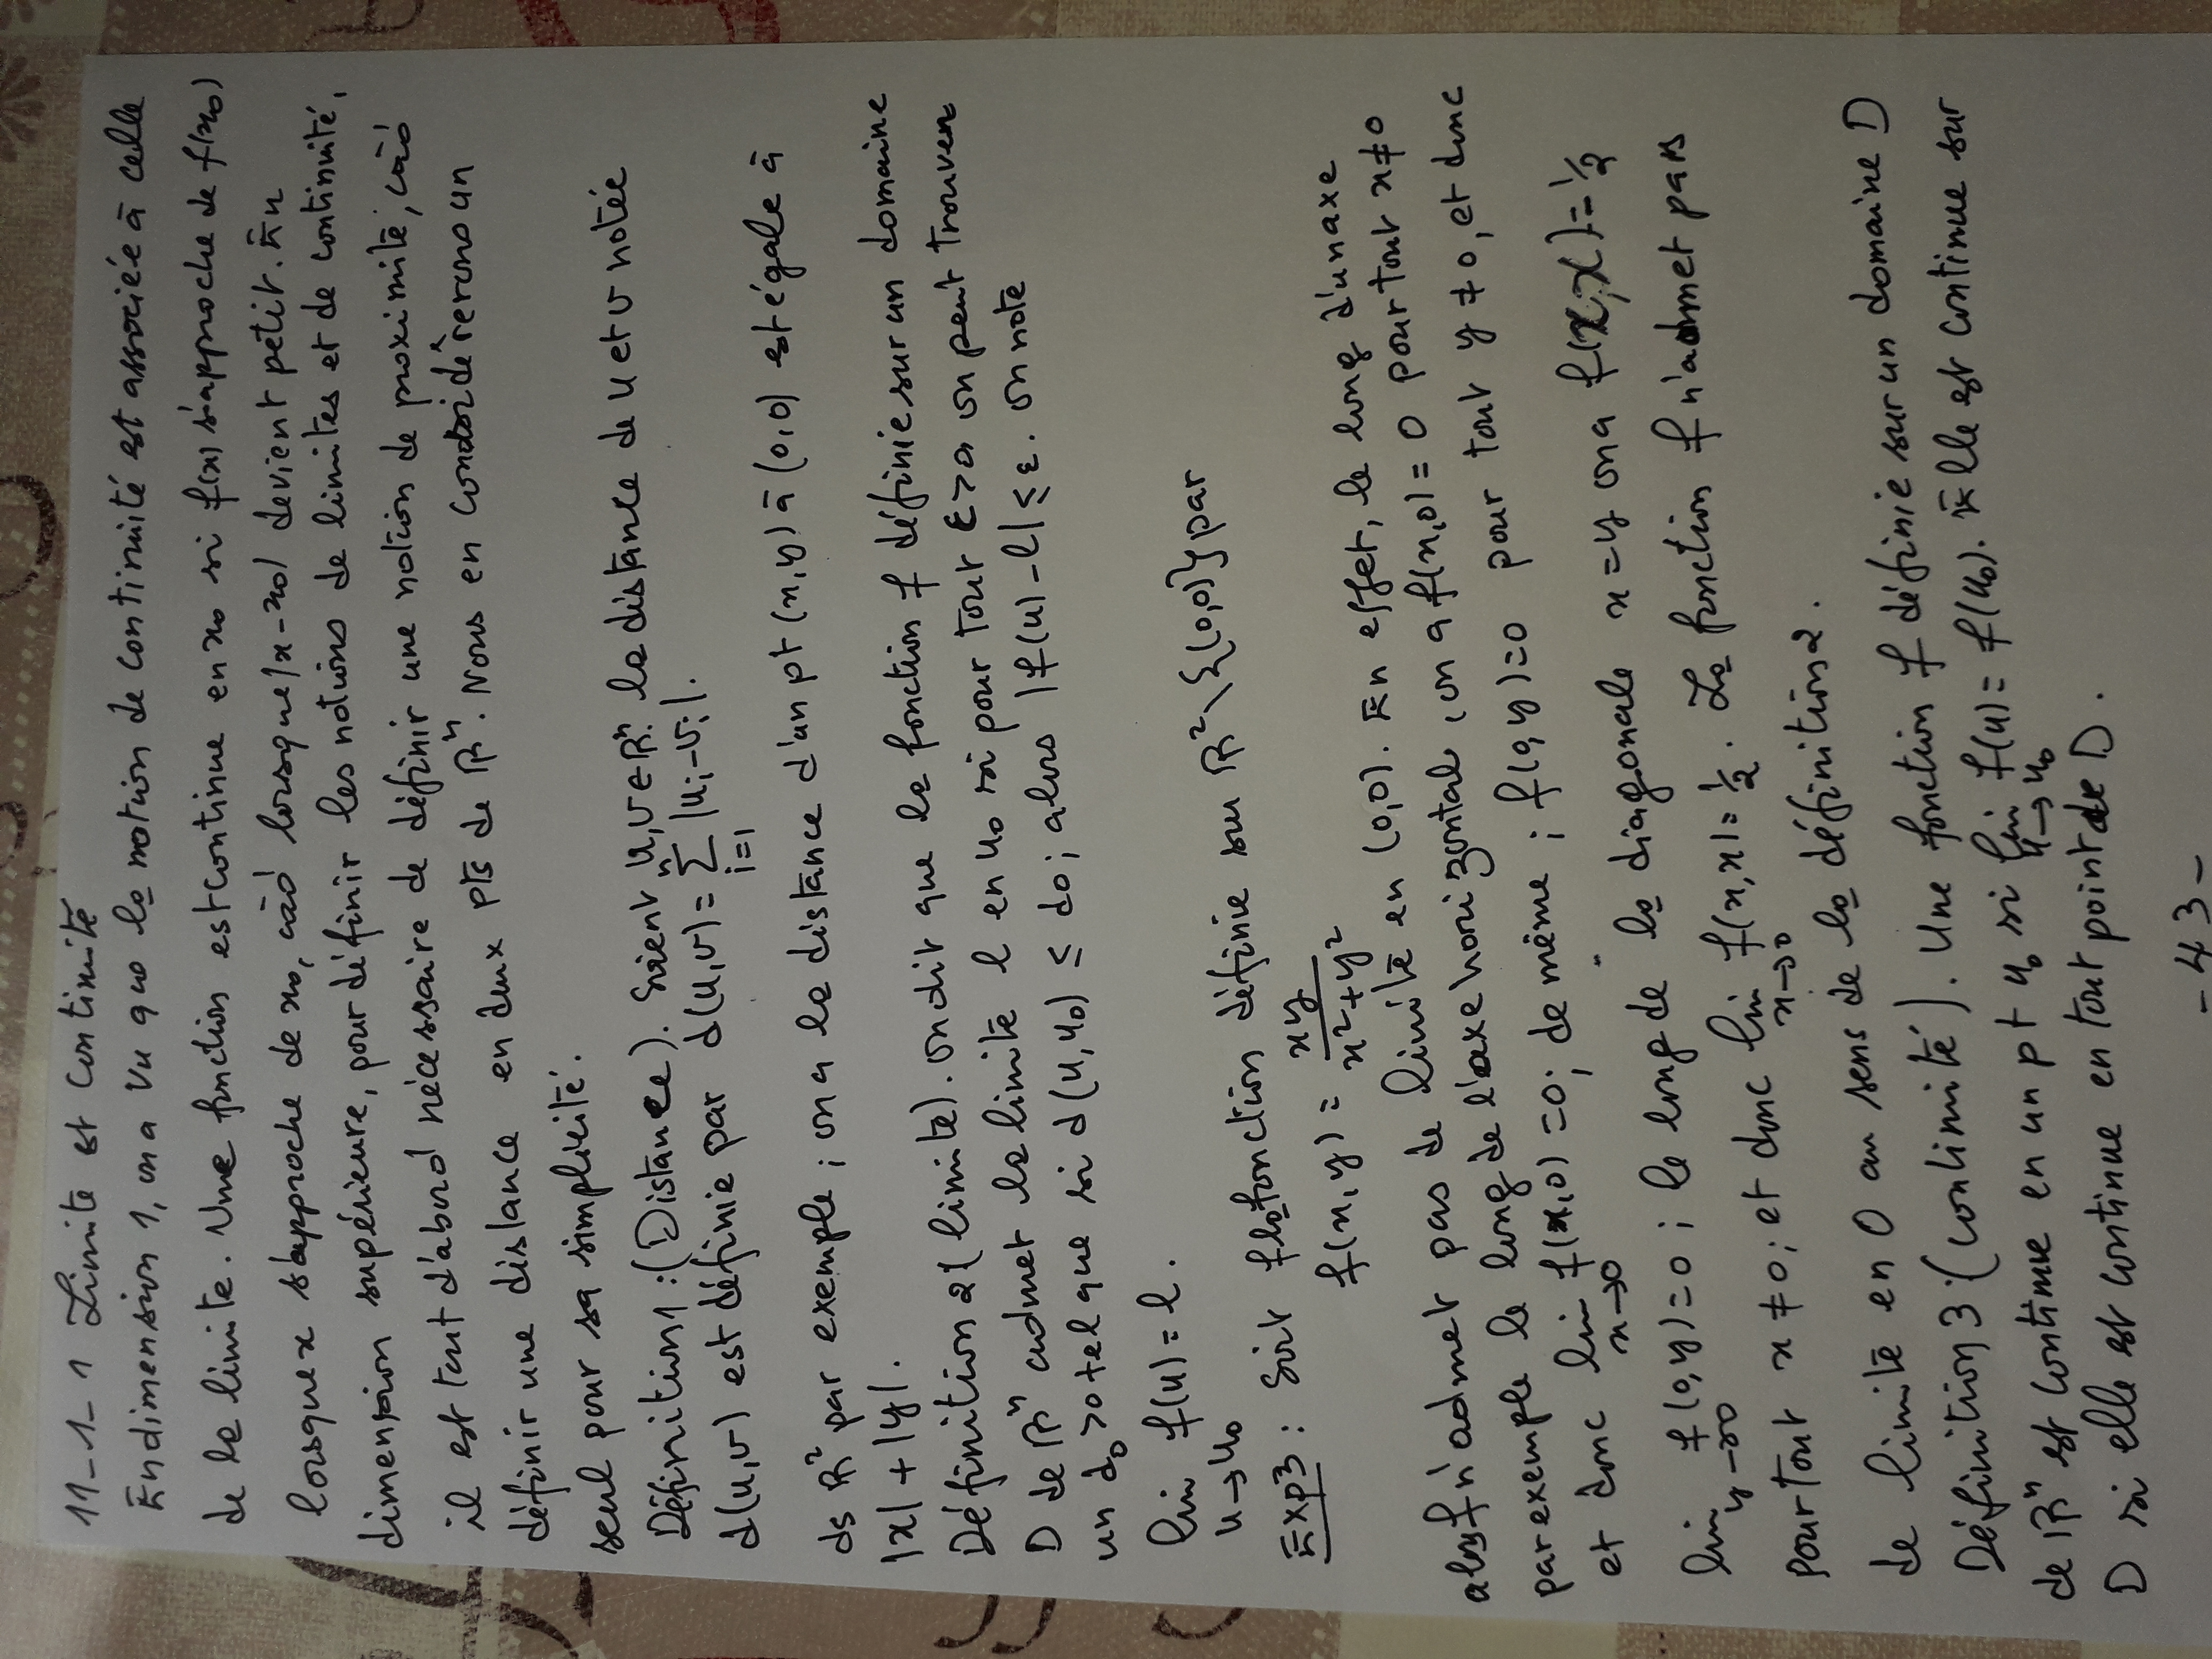 11-1-1 Limite et Continuité
En dimension 1, on a vu que la notion de continuité est associée à celle
de la limite. Une fonction est continue en x0 si f(x) s'approche de f(x0)
lorsque x s'approche de x0, càd lorsque |x-x0| devient petit. En
dimension supérieure, pour définir les notions de limites et de continuité,
il est tout d'abord nécessaire de définir une notion de proximité, càd
définir une distance en deux pts de ℝⁿ. Nous en considérerons un
seul pour sa simplicité.
Définition 1 : (Distance). Soient u, v ∈ ℝⁿ. la distance de u et v notée
d(u,v) est définie par d(u,v) = ∑ⁿᵢ₌₁ |uᵢ-vᵢ|.
ds ℝ² par exemple ; on a la distance d'un pt (x,y) à (0,0) est égale à
|x| + |y|.
Définition 2 (limite). on dit que la fonction f définie sur un domaine
D de ℝⁿ admet la limite l en u₀ si pour tout ε>0 on peut trouver
un d₀>0 tel que si d(u,u₀) ≤ d₀ ; alors |f(u)-l| ≤ ε. on note
lim f(u) = l.
u→u₀
Exp3 : Soit f la fonction définie sur ℝ²\{(0,0)} par
f(x,y) = xy/(x²+y²)
alors f n'admet pas de limite en (0,0). En effet, le long d'un axe
par exemple le long de l'axe horizontal, on a f(x,0) = 0 pour tout x≠0
et donc lim x→0 f(x,0) = 0 ; de même ; f(0,y) = 0 pour tout y ≠ 0, et donc
lim y→0 f(0,y) = 0 ; le long de la diagonale x=y on a f(x,x) = 1/2
pour tout x ≠ 0 ; et donc lim x→0 f(x,x) = 1/2. La fonction f n'admet pas
de limite en 0 au sens de la définition 2.
Définition 3 : (continuité). Une fonction f définie sur un domaine D
de ℝⁿ est continue en un pt u₀ si lim u→u₀ f(u) = f(u₀). Elle est continue sur
D si elle est continue en tout point de D.
-43-